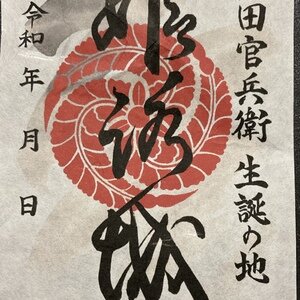 田官兵衛 生誕の地
姫路城
令和 年 月 日